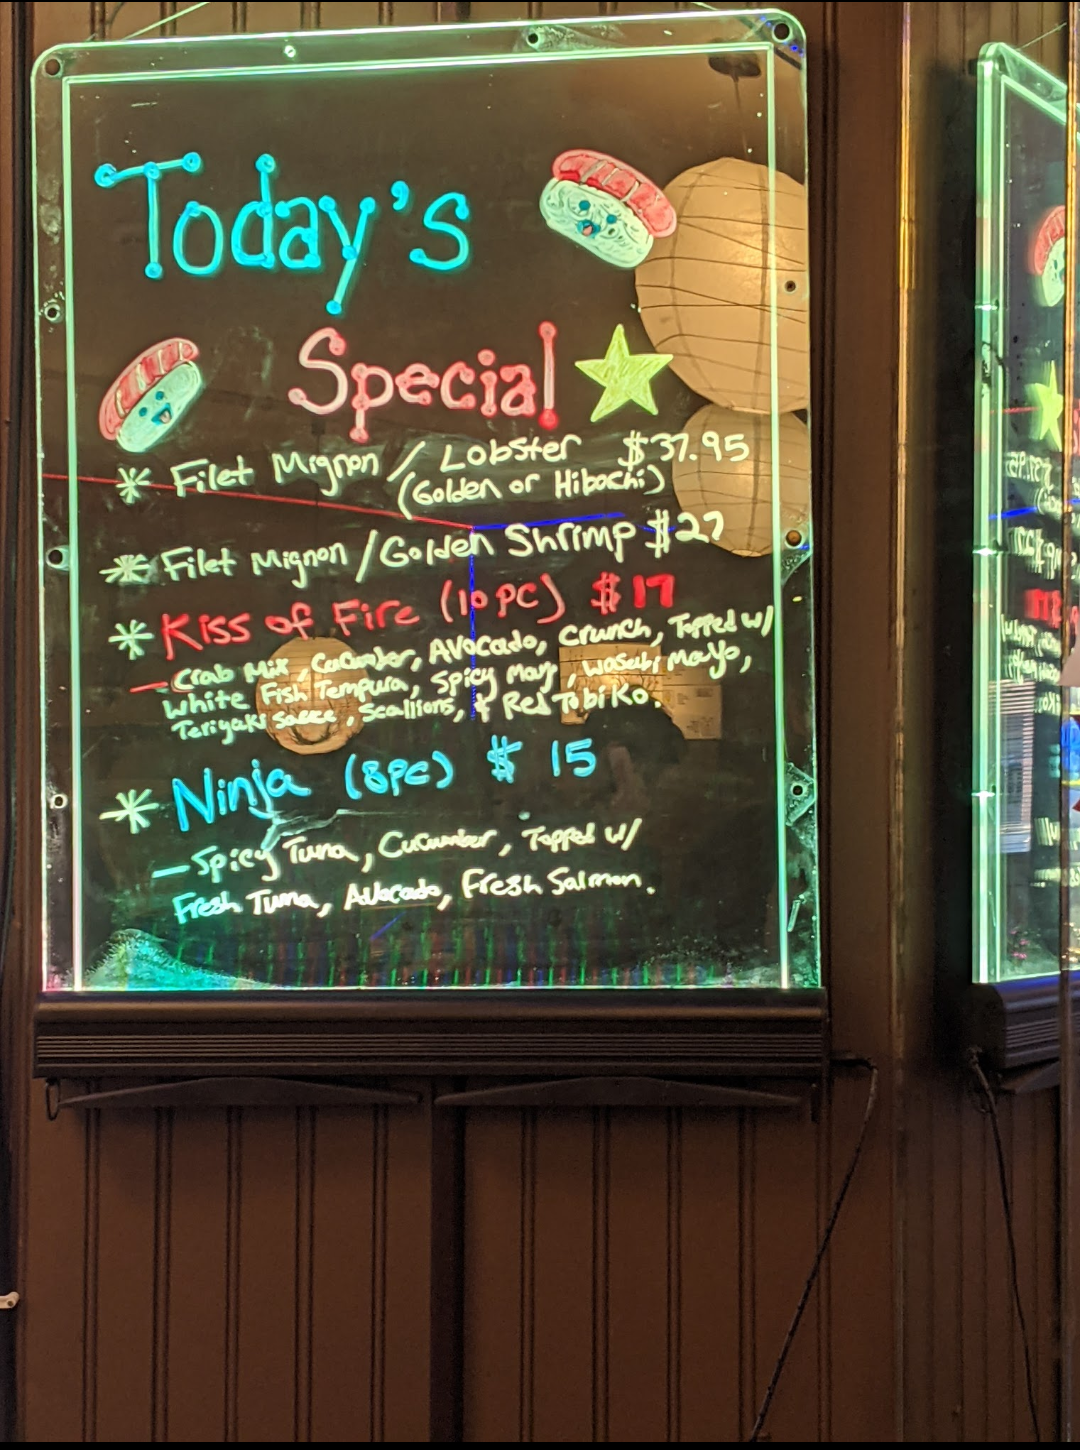 Today's
Special
* Filet Mignon / Lobster $37.95
(Golden or Hibachi)
* Filet Mignon / Golden Shrimp $27
* Kiss of Fire (10 pc) $17
- Crab Mix, Cucumber, Avocado, Crunch, Topped w/
White Fish Tempura, Spicy Mayo, Wasabi Mayo,
Teriyaki Sauce, Scallions, & Red Tobiko.
* Ninja (8pc) $15
- Spicy Tuna, Cucumber, Topped w/
Fresh Tuna, Avocado, Fresh Salmon.